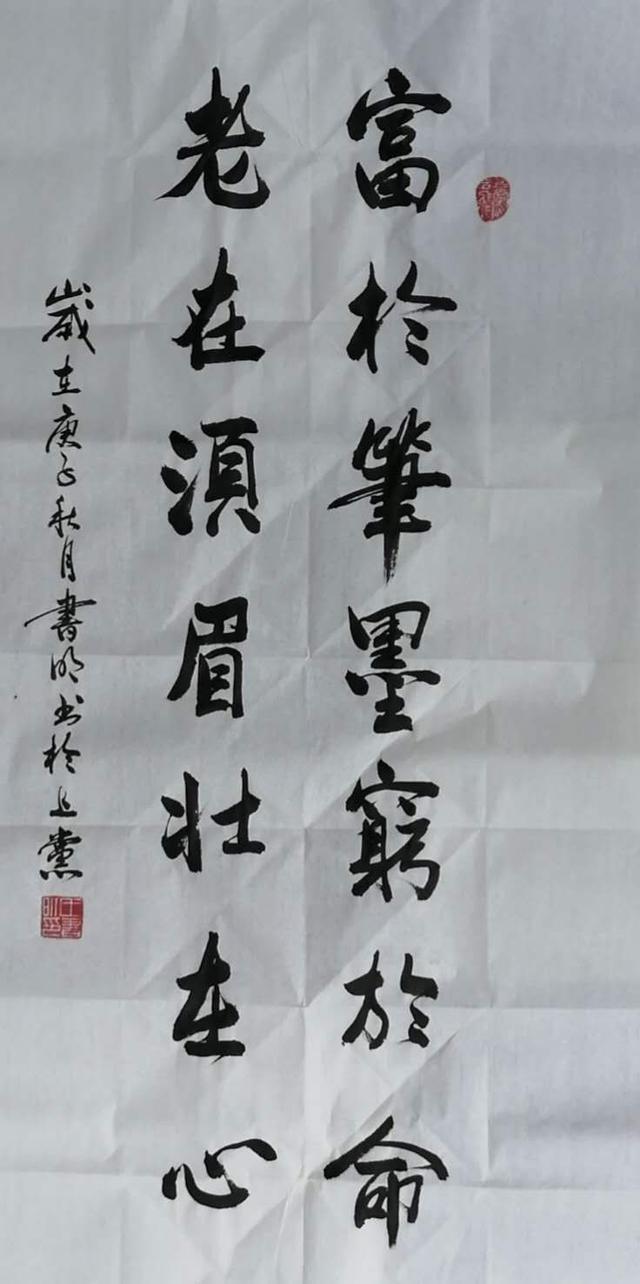 富於筆墨窮於命
老在須眉壯在心
歲在庚子秋月書明书於上黨